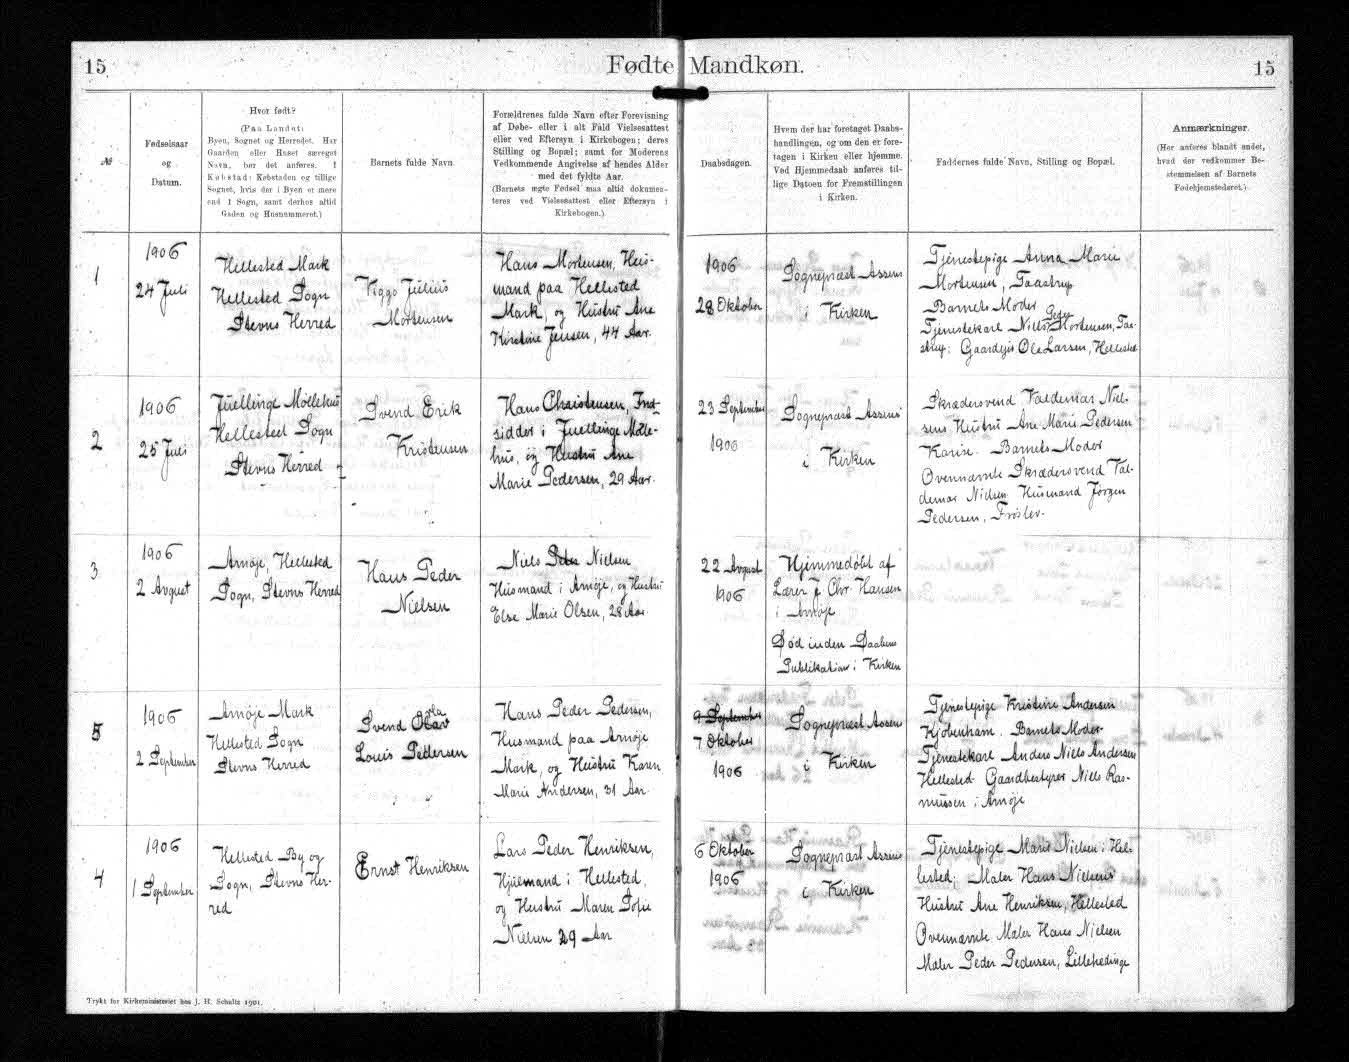 15
Fødte Mandkøn.
15
№
Fødselsaar
og
Datum.
Hvor født?
(Paa Landet:
Byen, Sognet og Herredet. Har
Gaarden eller Huset særeget
Navn, bør det anføres. I
Købstad: Købstaden og tillige
Sognet, hvis der i Byen er mere
end 1 Sogn, samt derhos altid
Gaden og Husnummeret.)
Barnets fulde Navn.
Forældrenes fulde Navn efter Forevisning
af Døbe- eller i alt Fald Vielsesattest
eller ved Eftersyn i Kirkebogen; deres
Stilling og Bopæl; samt for Moderens
Vedkommende Angivelse af hendes Alder
med det fyldte Aar.
(Barnets ægte Fødsel maa altid dokumen-
teres ved Vielsesattest eller Eftersyn i
Kirkebogen.)
Daabsdagen.
Hvem der har foretaget Daabs-
handlingen, og om den er fore-
tagen i Kirken eller hjemme.
Ved Hjemmedaab anføres til-
lige Datoen for Fremstillingen
i Kirken.
Faddernes fulde Navn, Stilling og Bopæl.
Anmærkninger.
(Her anføres blandt andet,
hvad der vedkommer Be-
stemmelsen af Barnets
Fødehjemstedsret.)
1
1906
24 Juli
Hellested Mark
Hellested Sogn
Stevns Herred
Viggo Julius
Mortensen
Hans Mortensen, Hus-
mand paa Hellested
Mark, og Hustru Ane
Kirstine Jensen, 44 Aar.
1906
28 Oktober
Sognepræst Assens
i Kirken
Tjenestepige Anna Marie
Mortensen, Taastrup
Barnets Moder
Peder
Tjenestekarl Niels Mortensen, Taa-
strup; Gaardejer Ole Larsen, Hellested
2
1906
25 Juli
Juellinge Møllehus
Hellested Sogn
Stevns Herred
Svend Erik
Kristensen
Hans Christensen, Ind-
sidder i Juellinge Mølle-
hus, og Hustru Ane
Marie Pedersen, 29 Aar.
23 September
1906
Sognepræst Assens
i Kirken
Skrædersvend Valdemar Niel-
sens Hustru Ane Marie Pedersen
Karise. Barnets Moder
Ovennævnte Skrædersvend Val-
demar Nielsen. Husmand Jørgen
Pedersen, Frøslev.
3
1906
2 Avgust
Arnøje, Hellested
Sogn, Stevns Herred
Hans Peder
Nielsen
Niels Peder Nielsen
Husmand i Arnøje, og Hustru
Else Marie Olsen, 28 Aar.
22 Avgust
1906
Hjemmedøbt af
Lærer J. Chr Hansen
i Arnøje
Død inden Daabens
Publikation i Kirken
5
1906
2 September
Arnøje Mark
Hellested Sogn
Stevns Herred
Svend Olav
Louis Pedersen
Hans Peder Pedersen,
Husmand paa Arnøje
Mark, og Hustru Karen
Marie Andersen, 31 Aar.
9 September
7 Oktober
1906
Sognepræst Assens
i Kirken
Tjenestepige Kristine Andersen
Kjøbenhavn. Barnets Moder.
Tjenestekarl Anders Niels Andersen
Hellested. Gaardbestyrer Niels Ras-
mussen i Arnøje
4
1906
1 September
Hellested By og
Sogn, Stevns Her-
red
Ernst Henriksen
Lars Peder Henriksen,
Hjulmand i Hellested,
og Hustru Maren Sofie
Nielsen 29 Aar
6 Oktober
1906
Sognepræst Assens
i Kirken
Tjenestepige Marie Nielsen i Hel-
lested; Maler Hans Nielsens
Hustru Ane Henriksen, Hellested
Ovennævnte Maler Hans Nielsen
Maler Peder Pedersen, Lilleheddinge
Trykt for Kirkeministeriet hos J. H. Schultz 1901.